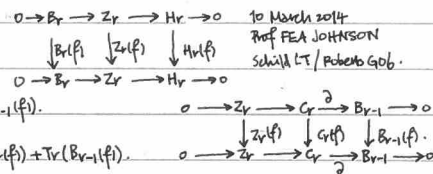 0 → Br → Zr → Hr → 0
10 March 2014
↓Br(f) ↓Zr(f) ↓Hr(f)
Prof FEA JOHNSON
0 → Br → Zr → Hr → 0
Schild LT / Roberts G06.
-1(f).
0 → Zr → Cr →∂ Br-1 → 0
↓Zr(f) ↓Cr(f) ↓Br-1(f).
(f) + Tr(Br-1(f)).
0 → Zr → Cr →∂ Br-1 → 0